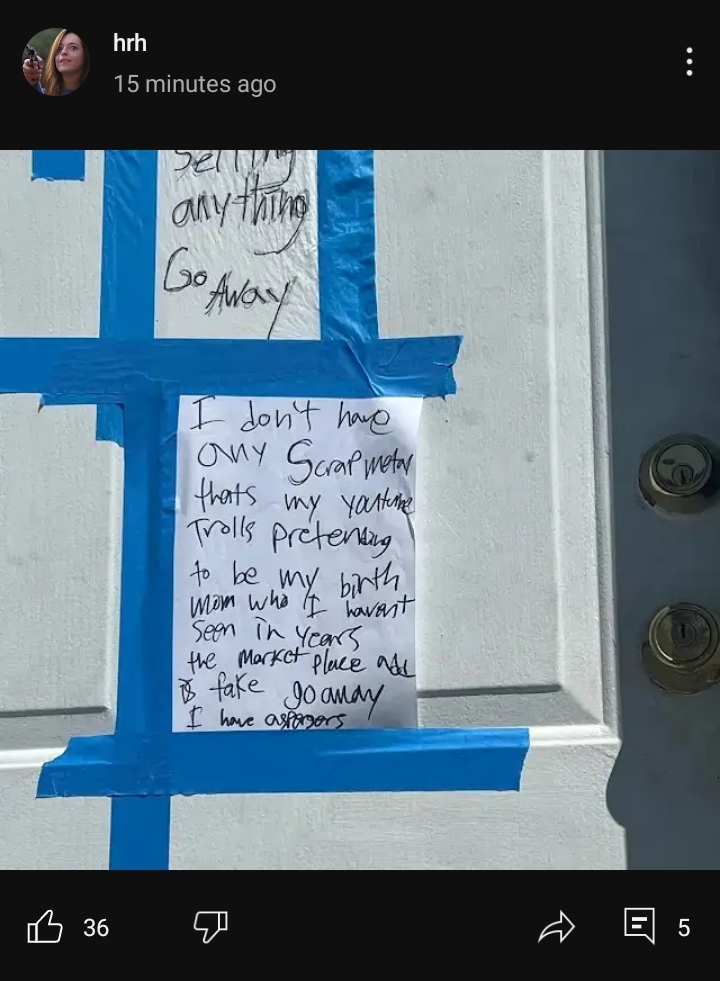 hrh
15 minutes ago
Selling
anything
Go Away
I don't have
any Scrap metal
thats my youtube
Trolls pretending
to be my birth
mom who I havent
seen in years
the market place add
is fake go away
I have aspergers
36
5